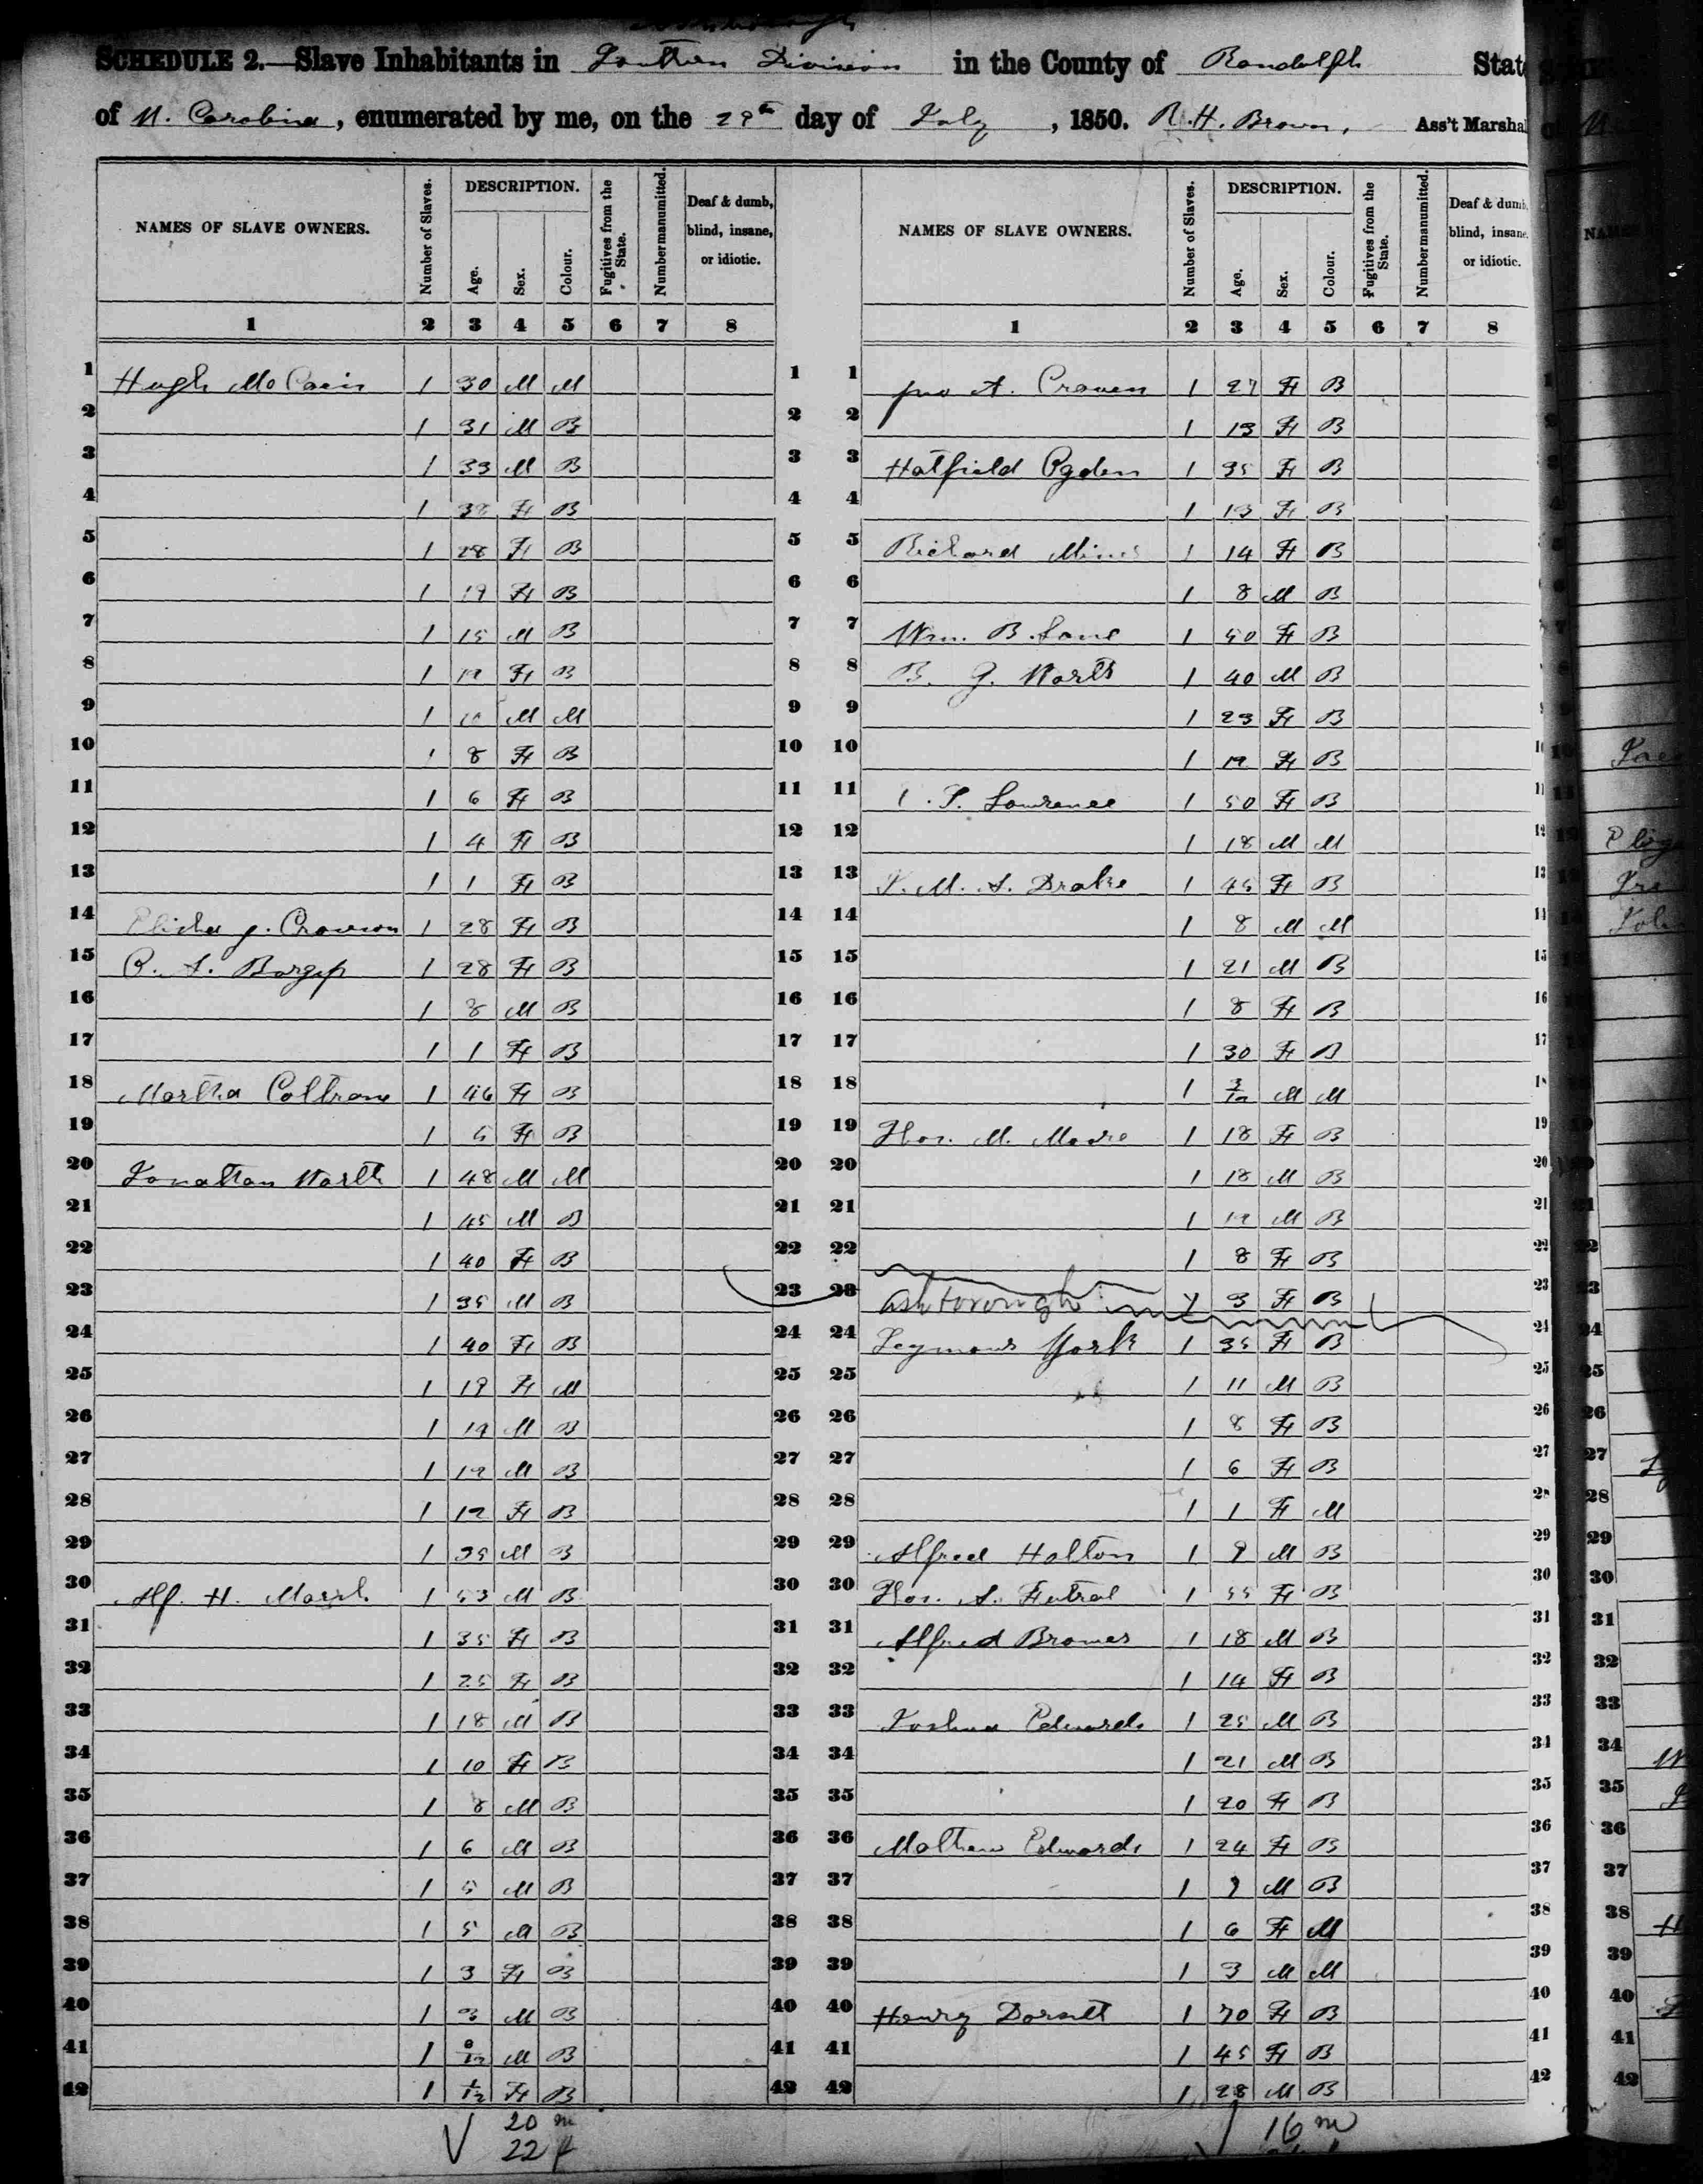 SCHEDULE 2.—Slave Inhabitants in Southern Division in the County of Randolph State
of N. Carolina, enumerated by me, on the 29th day of July, 1850. R. H. Brown, Ass't Marshal
NAMES OF SLAVE OWNERS. Number of Slaves. DESCRIPTION. Age. Sex. Colour. Fugitives from the State. Number manumitted. Deaf & dumb, blind, insane, or idiotic.
1 2 3 4 5 6 7 8
1 Hugh McCain 1 30 M M 1
2 1 31 M B 2
3 1 33 M B 3
4 1 38 F B 4
5 1 28 F B 5
6 1 19 F B 6
7 1 15 M B 7
8 1 F B 8
9 1 10 M M 9
10 1 8 F B 10
11 1 6 F B 11
12 1 4 F B 12
13 1 1 F B 13
14 Elisha 1 28 F B 14
15 1 28 F B 15
16 1 8 M B 16
17 1 1 F B 17
18 Martha Coltrane 1 46 F B 18
19 1 5 F B 19
20 Jonathan Worth 1 48 M M 20
21 1 45 M B 21
22 1 40 F B 22
23 1 35 M B 23
24 1 40 F B 24
25 1 19 F M 25
26 1 M B 26
27 1 M B 27
28 1 12 F B 28
29 1 35 M B 29
30 Alf. H. Marsh 1 53 M B 30
31 1 35 F B 31
32 1 25 F B 32
33 1 18 M B 33
34 1 10 F B 34
35 1 8 M B 35
36 1 6 M B 36
37 1 5 M B 37
38 1 5 M B 38
39 1 3 F B 39
40 1 3 M B 40
41 1 M B 41
42 1 1/12 F B 42
20 m
22 f
NAMES OF SLAVE OWNERS. Number of Slaves. DESCRIPTION. Age. Sex. Colour. Fugitives from the State. Number manumitted. Deaf & dumb, blind, insane, or idiotic.
1 2 3 4 5 6 7 8
1 Jno A. Craven 1 27 F B
2 1 13 F B
3 Hatfield Ogden 1 35 F B
4 1 13 F B
5 Richard 1 14 F B
6 1 8 M B
7 Wm. B. Lane 1 50 F B
8 B. G. Worth 1 40 M B
9 1 23 F B
10 1 F B
11 Lawrence 1 50 F B
12 1 18 M M
13 J. M. A. Drake 1 45 F B
14 1 8 M M
15 1 21 M B
16 1 8 F B
17 1 30 F B
18 1 3/12 M M
19 Thos. M. Moore 1 18 F B
20 1 18 M B
21 1 M B
22 1 8 F B
23 Ashborough 1 3 F B
24 Seymour York 1 35 F B
25 1 11 M B
26 1 8 F B
27 1 6 F B
28 1 1 F M
29 Alfred Holton 1 9 M B
30 Thos. S. Futral 1 55 F B
31 Alfred Brower 1 18 M B
32 1 14 F B
33 Joshua Edwards 1 25 M B
34 1 21 M B
35 1 20 F B
36 Mathew Edwards 1 24 F B
37 1 9 M B
38 1 6 F M
39 1 3 M M
40 Henry Dorsett 1 70 F B
41 1 45 F B
42 1 28 M B
16 m